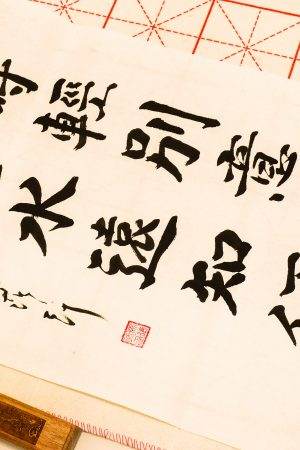 時輕別意
水遠知何